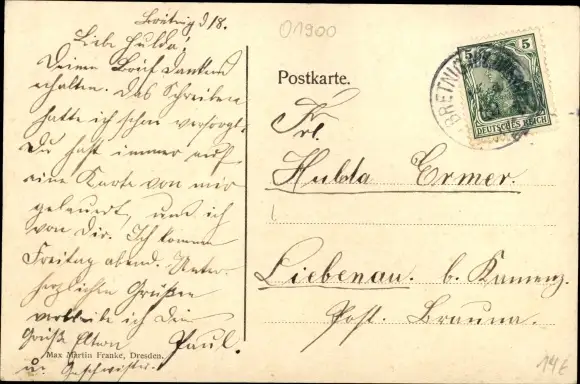 Bretnig 9/8.
Liebe Hulda!
Deinen Brief dankend
erhalten. Das Schreiben
hatte ich schon versorgt.
Du hast immer auf
eine Karte von mir
gelauert, und ich
von Dir. Ich komme
Freitag abend. Unter
herzlichen Grüßen
verbleibe ich Dein
Paul.
Grüß Eltern
u. Geschwister.
Max Martin Franke, Dresden.
01900
Postkarte.
BRETNIG
5
DEUTSCHES REICH
Frl.
Hulda Ermer.
Liebenau. b. Kamenz.
Post. Brauna.
14E